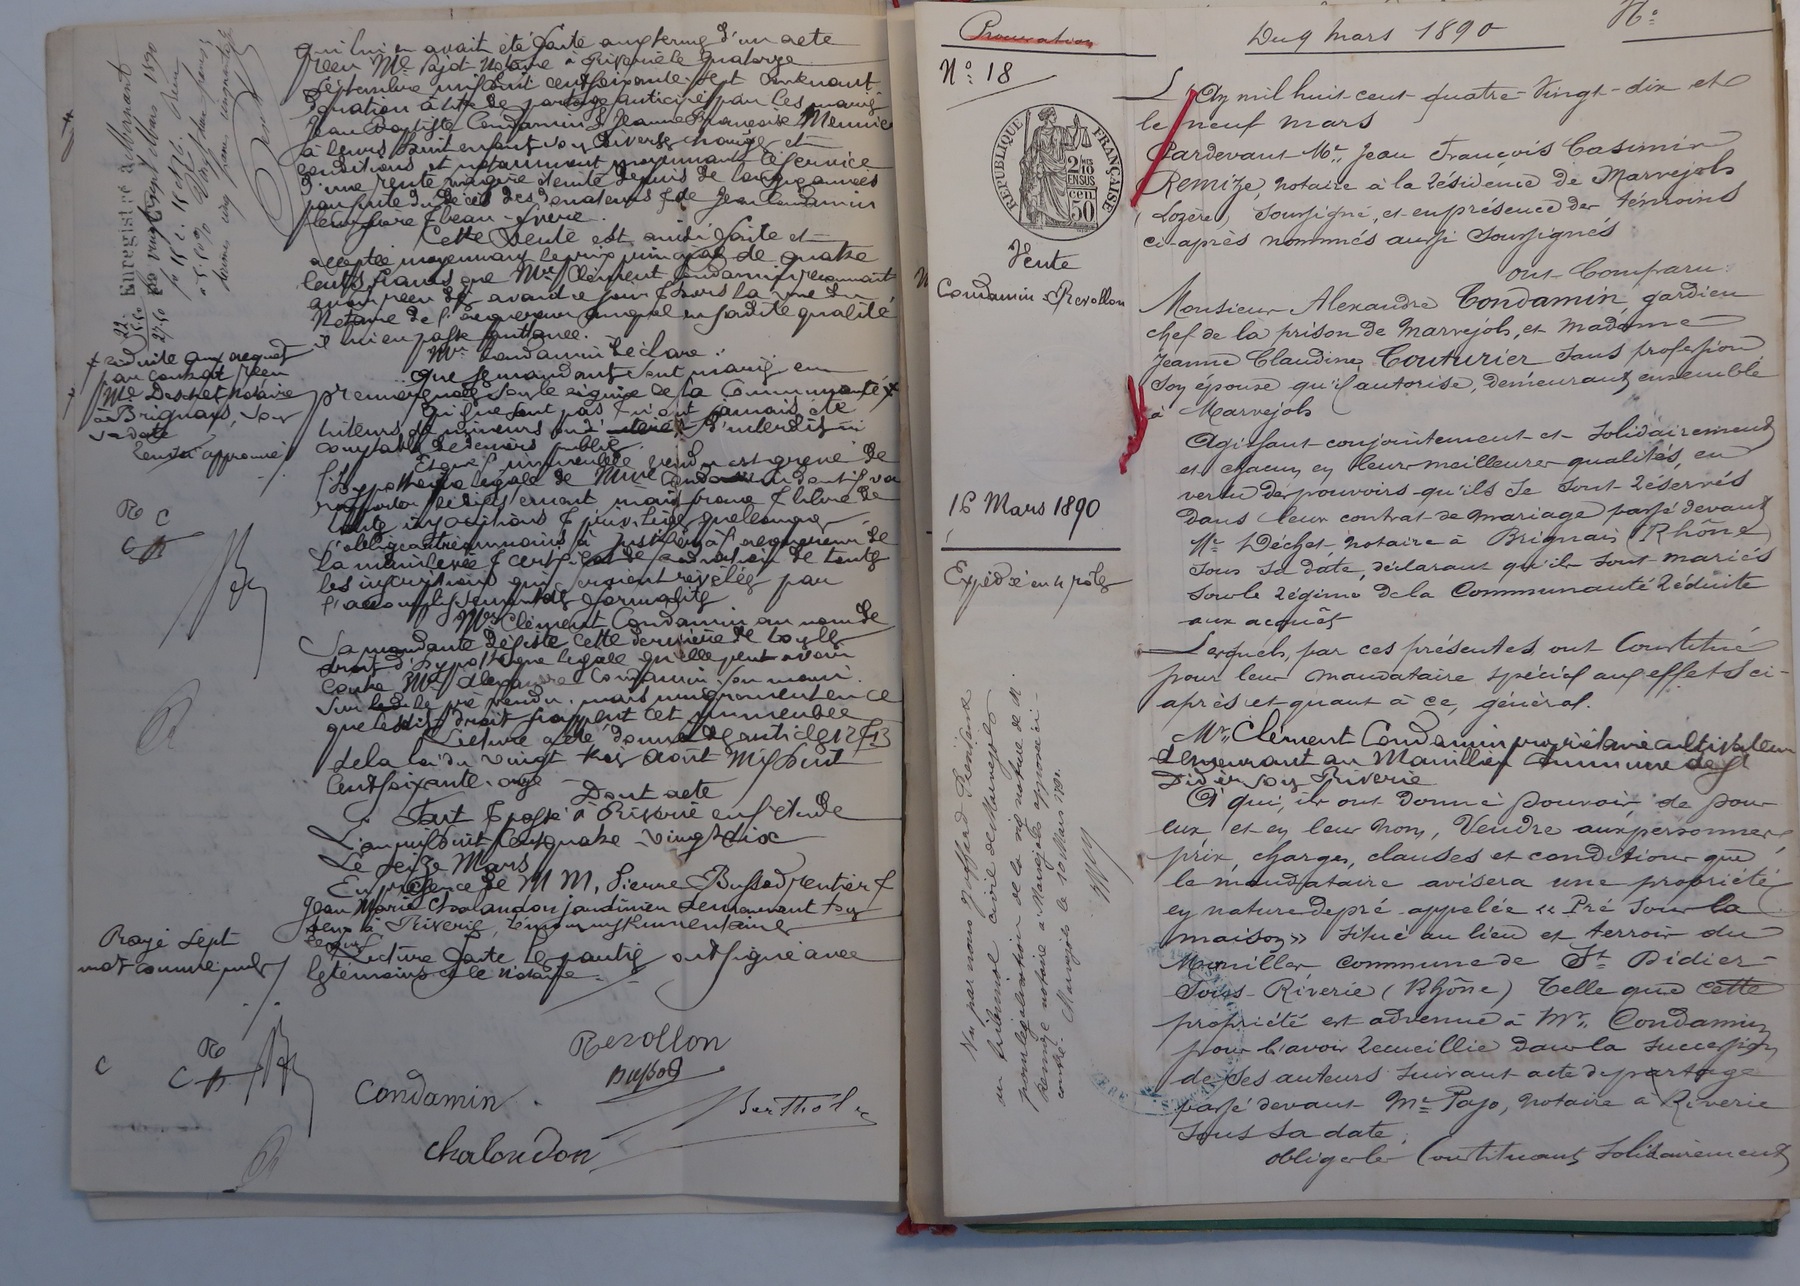 qui lui en avait été faite aux termes d'un acte
reçu Me Pajot notaire à Riverie le quatorze
Septembre mil huit cent soixante-sept contenant
Donation à titre de partage anticipé par les mariés
Jean Baptiste Condamin & Jeanne Françoise Meunier
à leurs huit enfants sous diverses charges et
conditions et notamment moyennant le service
d'une rente viagère éteinte depuis de longues années
par suite du décès des donateurs & de Jean Condamin
leur frère & beau-frère.
Cette vente est ainsi faite et
acceptée moyennant le prix principal de quatre
cents francs que Mr Clément Condamin reconnaît
avoir reçu dès avant ce jour & hors la vue du
Notaire de l'acquéreur auquel en sadite qualité
il lui en passe quittance.
Mr Condamin déclare :
Que ses mandants sont mariés en
premières noces sous le régime de la Communauté
Qu'ils ne sont pas & n'ont jamais été
tuteurs de mineurs ou d'interdits ni
comptables de deniers publics.
Et que l'immeuble vendu est grevé de
l'hypothèque légale de Mme Condamin dont il va
rapporter le désistement mais franc & libre de
toute inscriptions & privilège quelconque
s'obligeant néanmoins à justifier à l'acquéreur de
la mainlevée & certificat de radiation de toutes
les inscriptions qui seraient révélées par
l'accomplissement des formalités
Mr Clément Condamin au nom de
sa mandante désiste cette dernière de tous les
droits d'hypothèque légale qu'elle peut avoir
contre Mr Alexandre Condamin son mari
sur le pré vendu, mais uniquement en ce
que lesdits droits frappent cet immeuble
Lecture a été donnée des articles 12 & 13
de la loi du vingt trois août Mil huit
Cent soixante-onze
Dont acte
Fait & passé à Riverie en l'étude
L'an mil huit Cent quatre-vingt dix
Le Seize Mars
En présence de MM. Pierre Bussod rentier &
Jean Marie Chalandon jardinier demeurant tous
deux à Riverie, témoins instrumentaires
Lecture faite les parties ont signé avec
les témoins et le notaire.
Revollon
Bussod
Condamin
Berthol
Chalandon
Enregistré à Mornant
réduite aux acquets
au contrat reçu
Me Dechet notaire
à Brignais, sous
sa date
Renvoi approuvé
Rayé sept
mots comme nuls
Procuration
Du 9 Mars 1890
No
No 18
RÉPUBLIQUE FRANÇAISE
2/10mes EN SUS
50 cen
Vente
Condamin & Revollon
16 Mars 1890
Expédié en 4 rôles
Vu par nous Président
du tribunal civil de Marvejols
pour légalisation de la signature de M.
Remize notaire à Marvejols apposée ci
contre. Marvejols le 10 Mars 1890.
L'an mil huit cent quatre-vingt-dix et
le neuf mars
Pardevant Me Jean François Casimir
Remize, notaire à la résidence de Marvejols
(Lozère) Soussigné, et en présence des témoins
ci-après nommés aussi Soussignés
ont Comparu :
Monsieur Alexandre Condamin gardien
chef de la prison de Marvejols, et madame
Jeanne Claudine Couturier sans profession
son épouse qu'il autorise, demeurant ensemble
à Marvejols
Agissant conjointement et Solidairement
et chacun en leur meilleures qualités, en
vertu des pouvoirs qu'ils se sont réservés
dans leur contrat de mariage passé devant
Me Déchet notaire à Brignais (Rhône)
sous sa date, déclarant qu'ils sont mariés
sous le régime de la Communauté réduite
aux acquêts
Lesquels, par ces présentes ont Constitué
pour leur mandataire spécial aux effets ci-
après et quant à ce, général.
Mr Clément Condamin propriétaire cultivateur
demeurant au Maniller commune de St
Didier sous Riverie
à qui, ils ont donné pouvoir, de pour
eux et en leur nom, Vendre aux personnes,
prix, charges, clauses et conditions que
le mandataire avisera une propriété
en nature de pré appelée « Pré sous la
maison » situé au lieu et terroir du
Maniller commune de St Didier
sous-Riverie (Rhône) Telle que cette
propriété est advenue à Mr Condamin
pour l'avoir recueillie dans la succession
de ses auteurs suivant acte de partage
passé devant Me Pajo, notaire à Riverie
sous sa date ;
obliger les Constituants solidairement